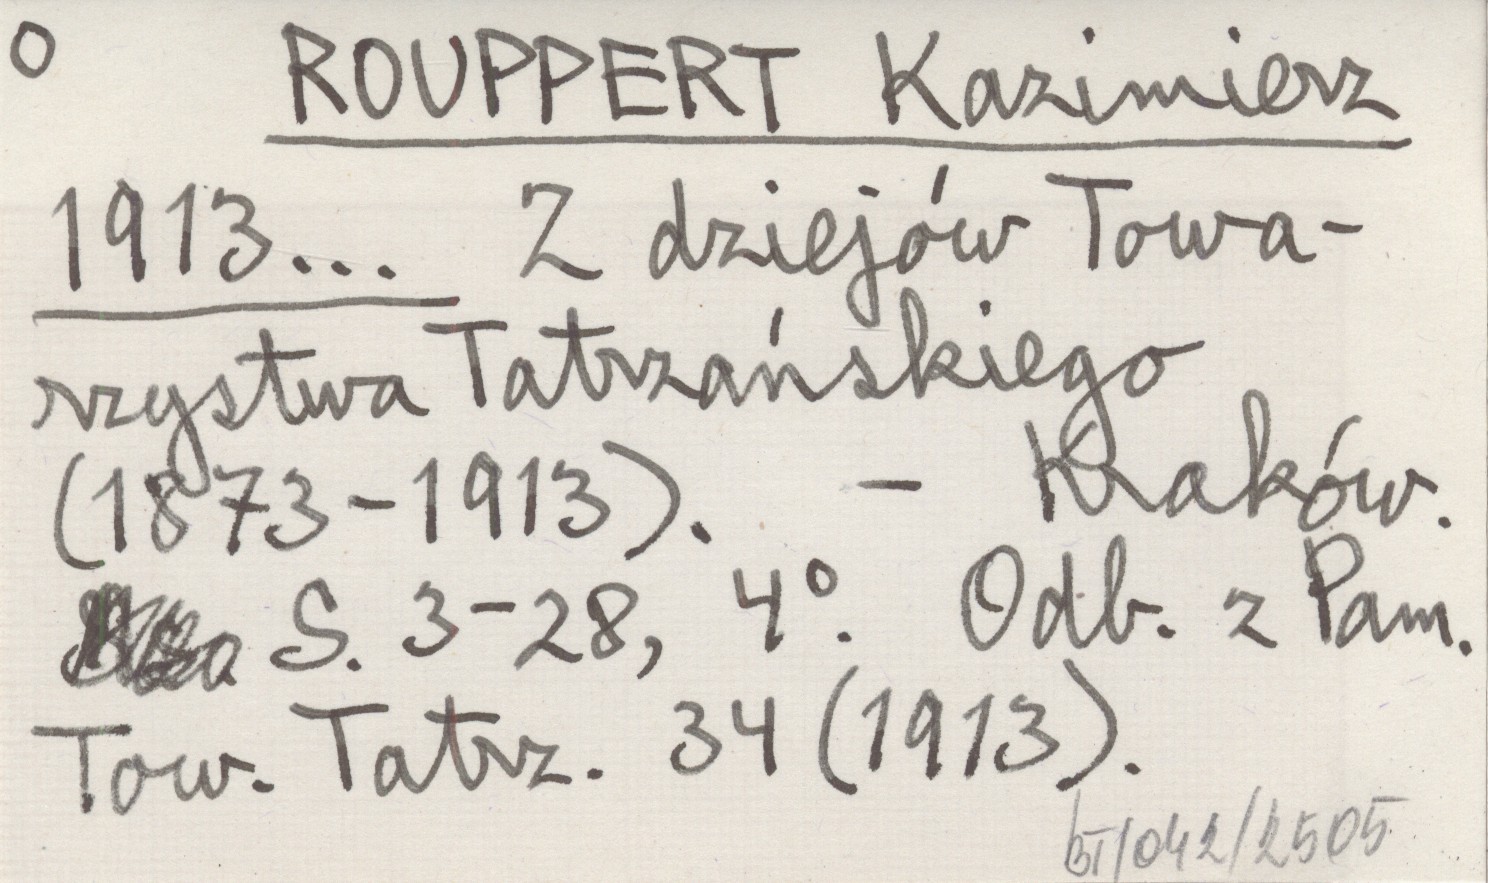 O ROUPPERT Kazimierz
1913... Z dziejów Towa-
rzystwa Tatrzańskiego
(1873-1913). - Kraków.
S. 3-28, 4°. Odb. z Pam.
Tow. Tatrz. 34 (1913).
BT/042/2505